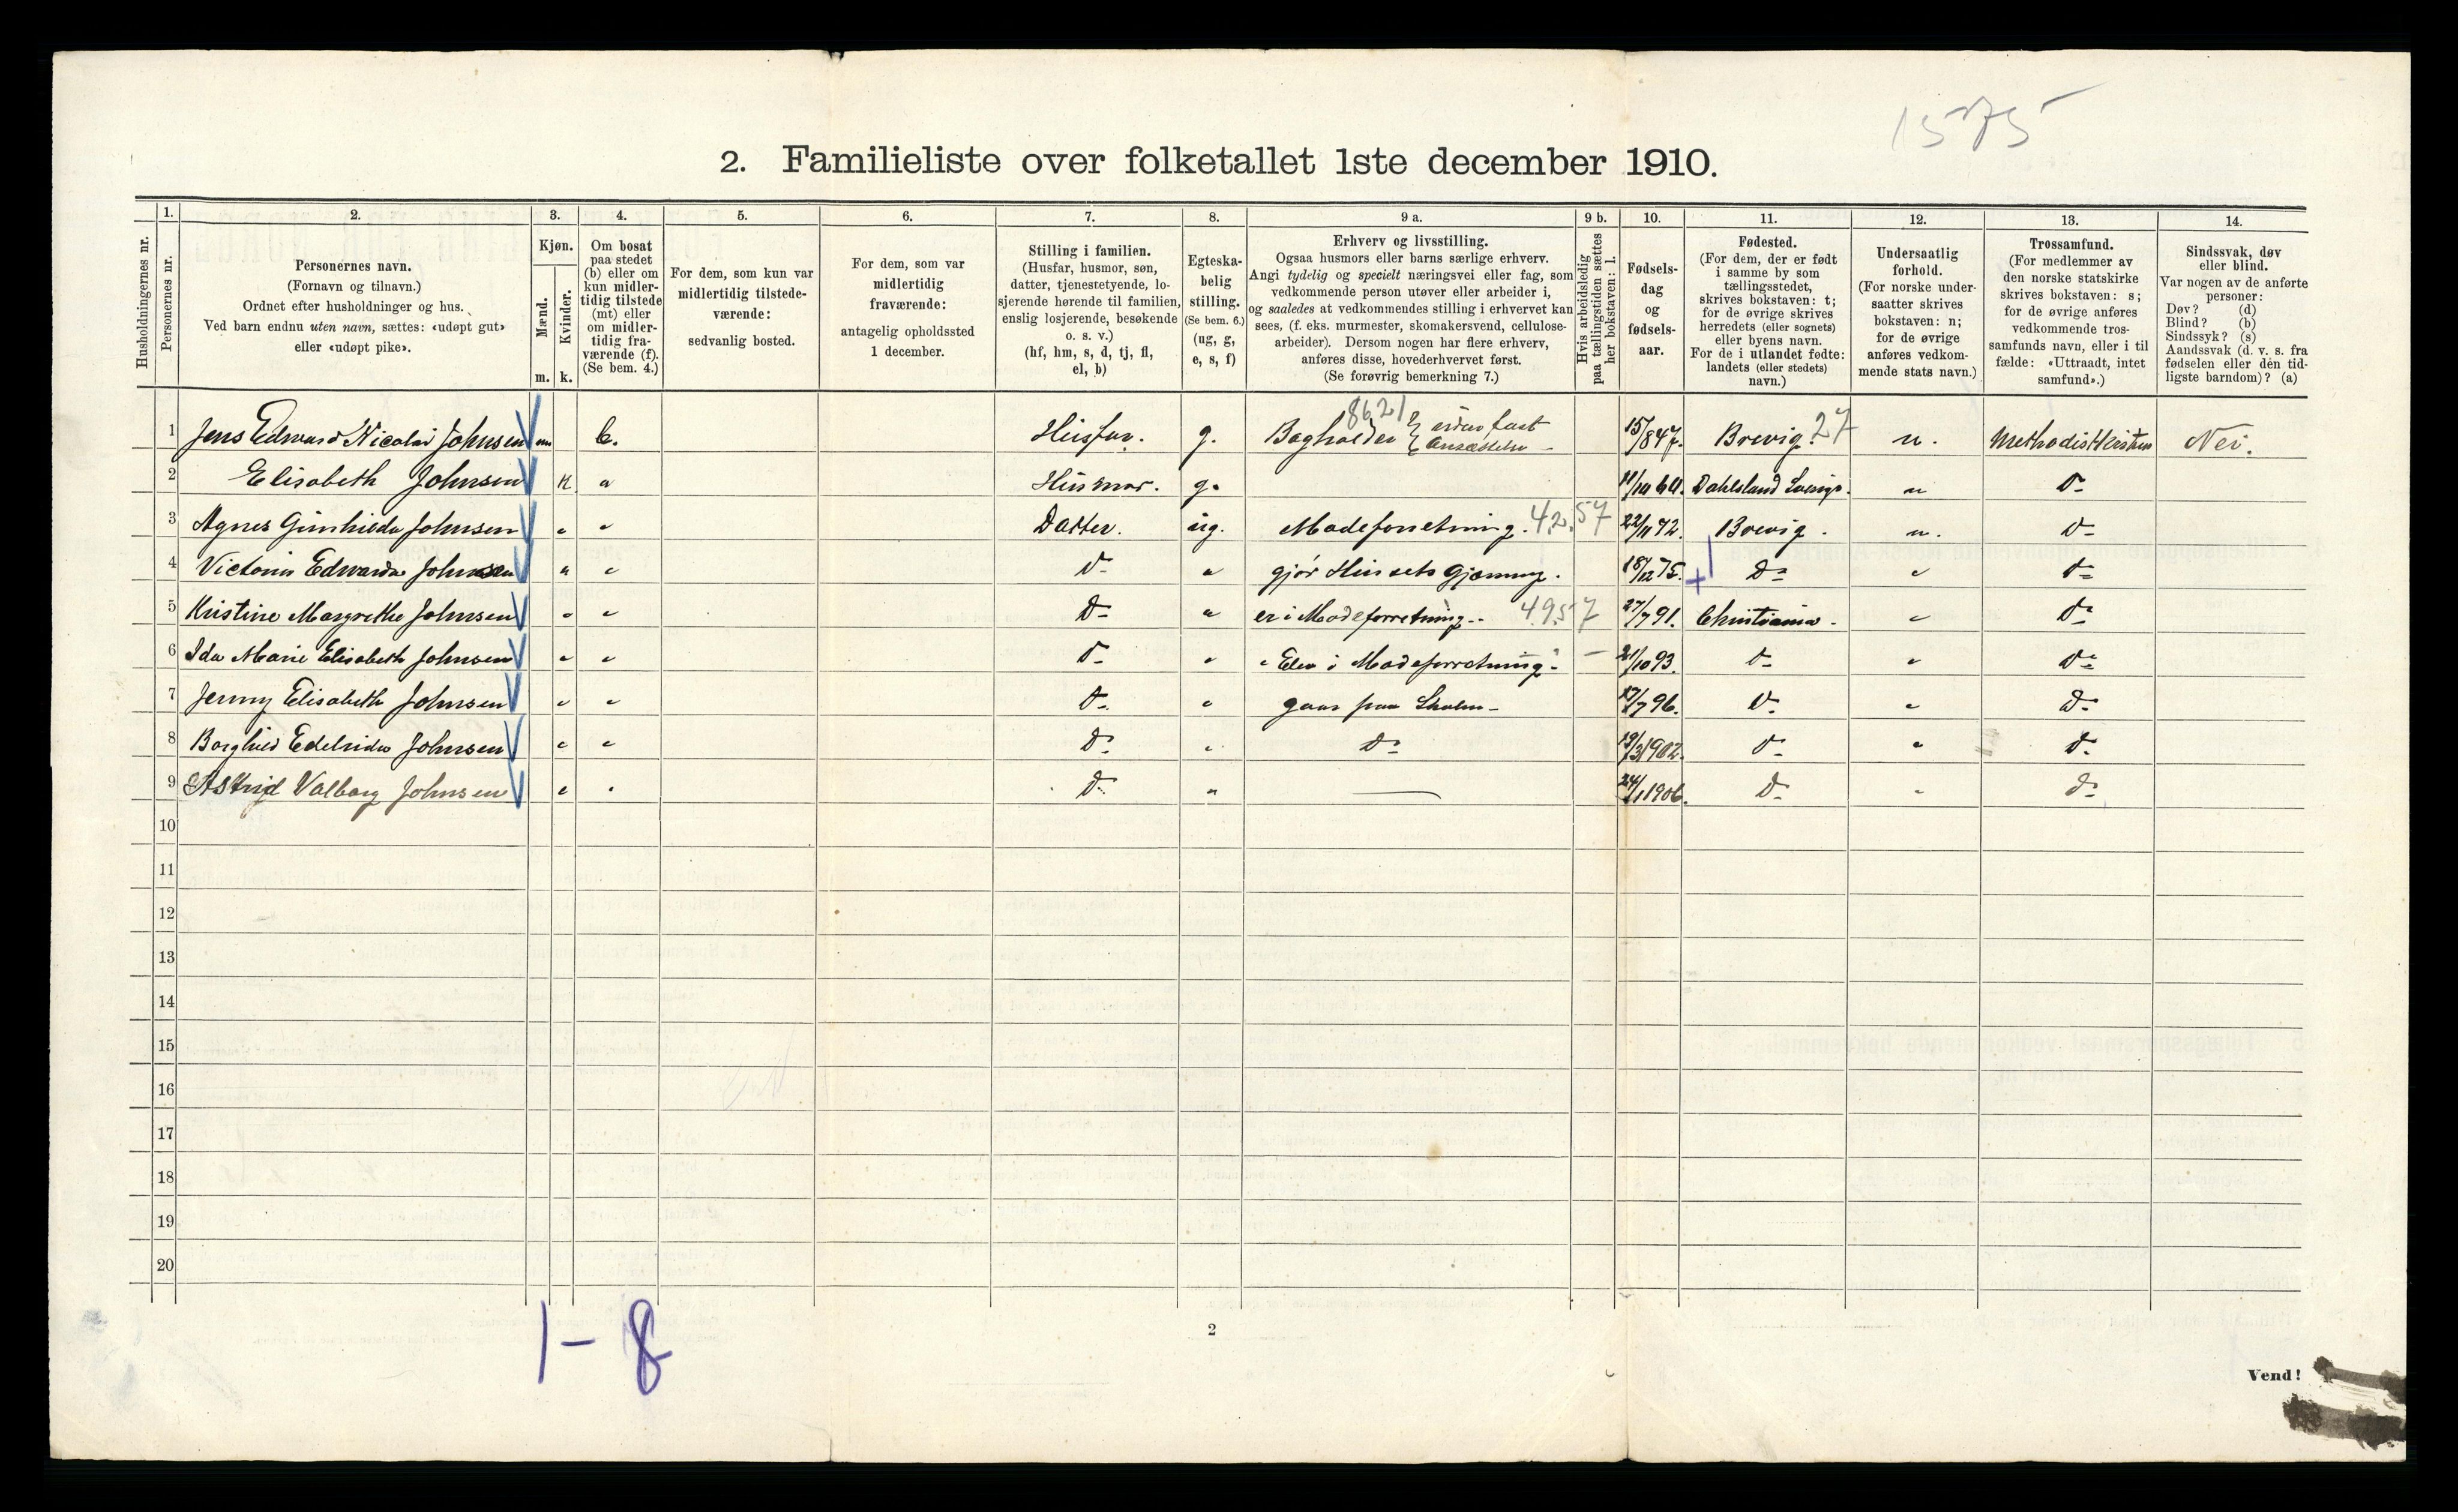 1575
2. Familieliste over folketallet 1ste december 1910.
Husholdningernes nr.
1. Personernes nr.
2. Personernes navn.
(Fornavn og tilnavn.)
Ordnet efter husholdninger og hus.
Ved barn endnu uten navn, sættes: «udøpt gut»
eller «udøpt pike».
3. Kjøn.
Mænd. m.
Kvinder. k.
4. Om bosat
paa stedet
(b) eller om
kun midler-
tidig tilstede
(mt) eller
om midler-
tidig fra-
værende (f).
(Se bem. 4.)
5. For dem, som kun var
midlertidig tilstede-
værende:
sedvanlig bosted.
6. For dem, som var
midlertidig
fraværende:
antagelig opholdssted
1 december.
7. Stilling i familien.
(Husfar, husmor, søn,
datter, tjenestetyende, lo-
sjerende hørende til familien,
enslig losjerende, besøkende
o. s. v.)
(hf, hm, s, d, tj, fl,
el, b)
8. Egteska-
belig
stilling.
(Se bem. 6.)
(ug, g,
e, s, f)
9 a. Erhverv og livsstilling.
Ogsaa husmors eller barns særlige erhverv.
Angi tydelig og specielt næringsvei eller fag, som
vedkommende person utøver eller arbeider i,
og saaledes at vedkommendes stilling i erhvervet kan
sees, (f. eks. murmester, skomakersvend, cellulose-
arbeider). Dersom nogen har flere erhverv,
anføres disse, hovederhvervet først.
(Se forøvrig bemerkning 7.)
9 b. Hvis arbeidsledig
paa tællingstiden sættes
her bokstaven: l.
10. Fødsels-
dag
og
fødsels-
aar.
11. Fødested.
(For dem, der er født
i samme by som
tællingsstedet,
skrives bokstaven: t;
for de øvrige skrives
herredets (eller sognets)
eller byens navn.
For de i utlandet fødte:
landets (eller stedets)
navn.)
12. Undersaatlig
forhold.
(For norske under-
saatter skrives
bokstaven: n;
for de øvrige
anføres vedkom-
mende stats navn.)
13. Trossamfund.
(For medlemmer av
den norske statskirke
skrives bokstaven: s;
for de øvrige anføres
vedkommende tros-
samfunds navn, eller i til
fælde: «Uttraadt, intet
samfund».)
14. Sindssvak, døv
eller blind.
Var nogen av de anførte
personer:
Døv? (d)
Blind? (b)
Sindssyk? (s)
Aandssvak (d. v. s. fra
fødselen eller den tid-
ligste barndom)? (a)
1 Jens Edward Nicolai Johnsen m b. Husfar. g. Bogholder { uden fast Ansættelse 8621 15/8 47. Brevig. 27 n. Methodistkirken Nei.
2 Elisabeth Johnsen K " Husmor. g. 11/10 60. Dahlsland Sverige. " Do
3 Agnes Gunhilda Johnsen " " Datter. ug. Modeforretning. 4257 22/11 72. Brevig. n. Do
4 Victoria Edwarda Johnsen " " Do " gjør Husets Gjerning. 18/12 75. Do " Do
5 Kristine Margrethe Johnsen " " Do " er i Modeforretning. 4957 27/7 91. Christiania. " Do
6 Ida Marie Elisabeth Johnsen " " Do " " Elev i Modeforretning. — 21/10 93. Do " Do
7 Jenny Elisabeth Johnsen " " Do " gaar paa Skolen 17/7 96. Do " Do
8 Borghild Edelrida Johnsen " " Do " Do 19/3 1902. Do " Do
9 Astrid Valborg Johnsen " " Do " — 24/1 1906. Do " Do
10
11
12
13
14
15
16
17
18
19
20
1 - 8
2
Vend!